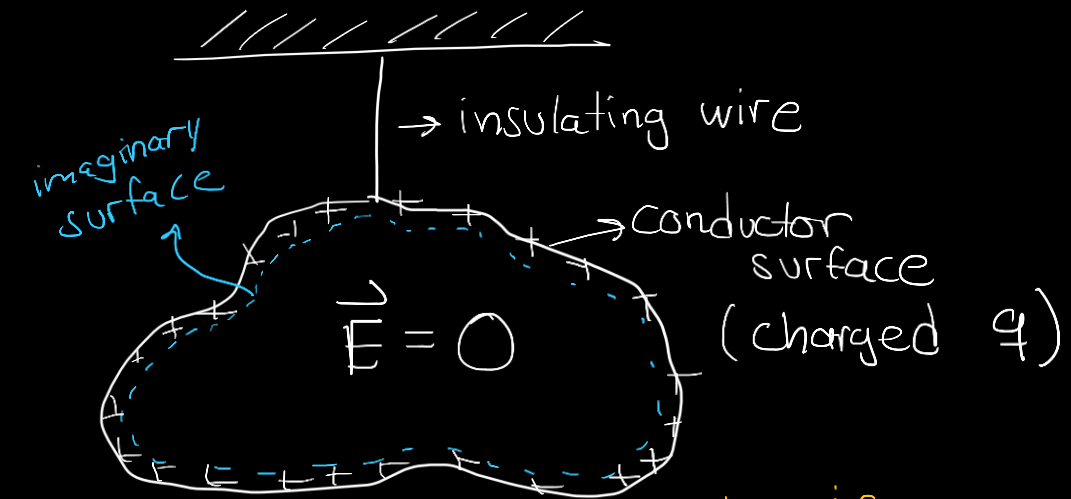 insulating wire
imaginary
surface
conductor
surface
(charged q)
E = 0